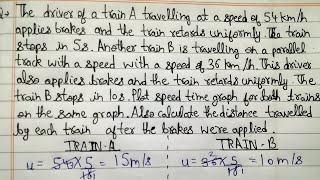 Q.) The driver of a train A travelling at a speed of 54 km/h
applies brakes and the train retards uniformly. The train
stops in 5s. Another train B is travelling on a parallel
track with a speed with a speed of 36 km/h. This driver
also applies brakes and the train retards uniformly. The
train B stops in 10s. Plot speed time graph for both trains
on the same graph. Also calculate the distance travelled
by each train after the brakes were applied.
TRAIN-A TRAIN-B
u = 54 × 5/18 = 15 m/s u = 36 × 5/18 = 10 m/s